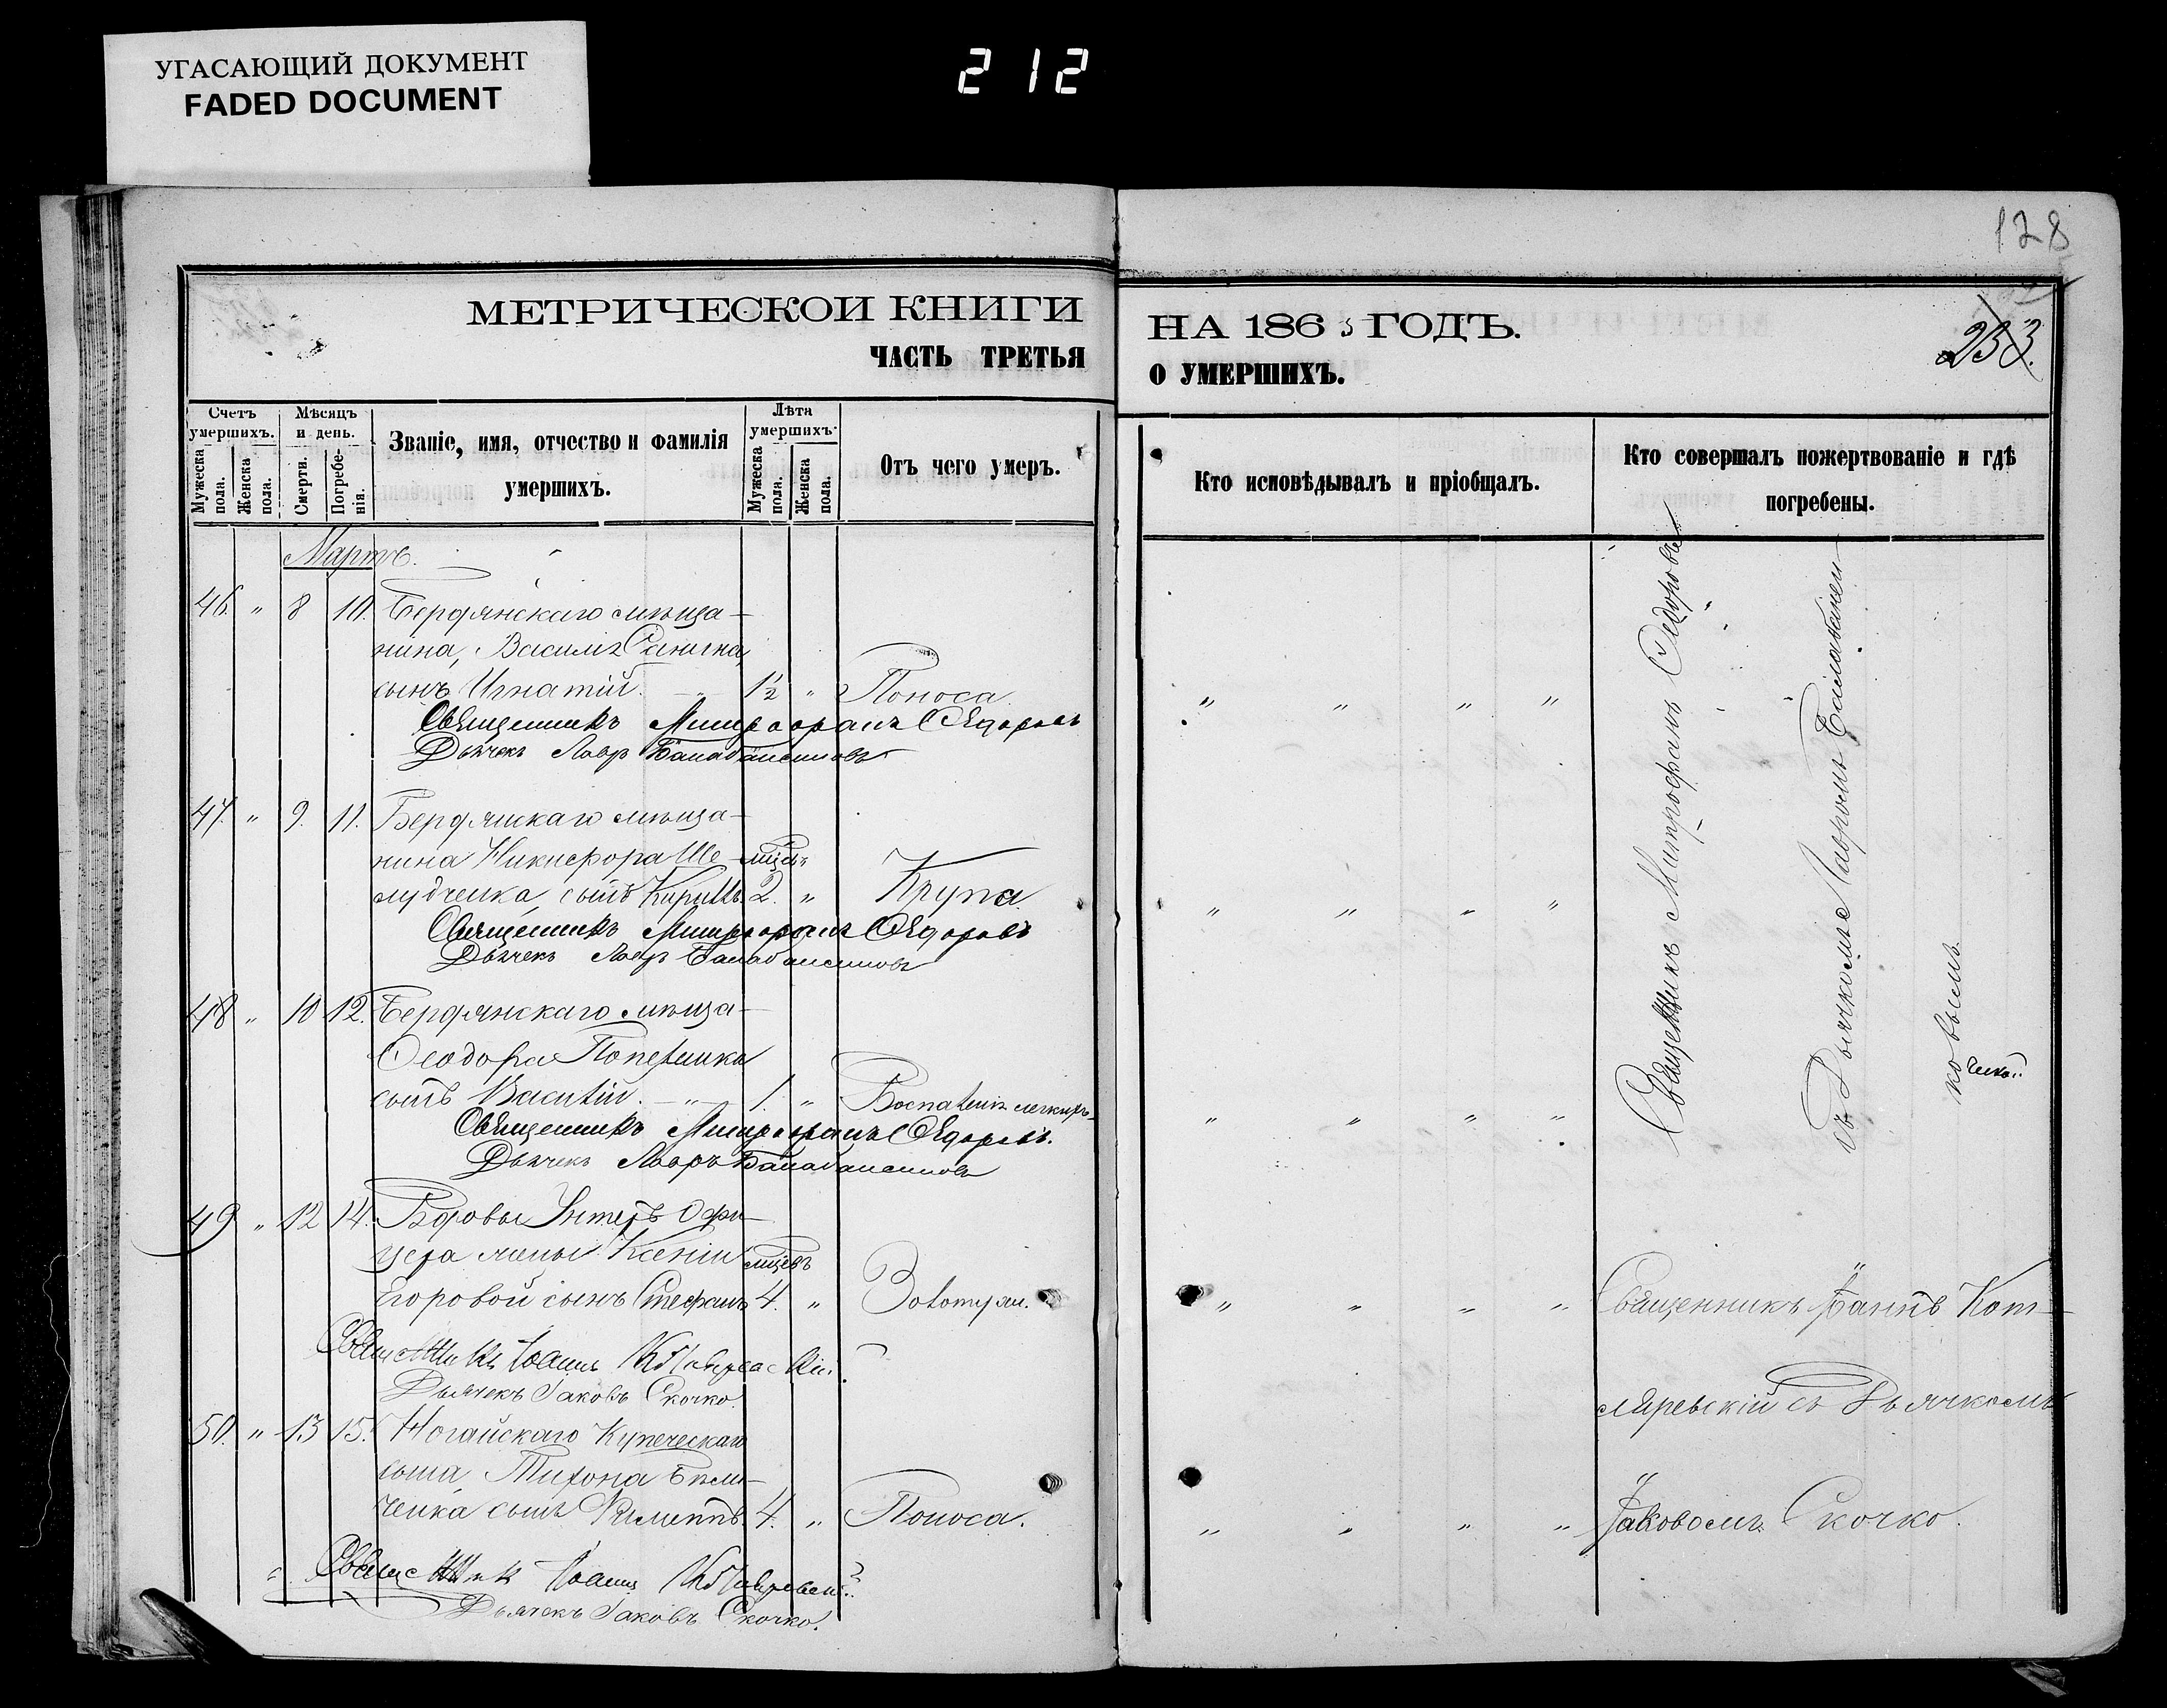 УГАСАЮЩИЙ ДОКУМЕНТ
FADED DOCUMENT
212
128
МЕТРИЧЕСКОЙ КНИГИ
ЧАСТЬ ТРЕТЬЯ
НА 1863 ГОДЪ.
О УМЕРШИХЪ.
233.
Счетъ умершихъ.
Мужеска пола.
Женска пола.
Мѣсяцъ и день.
Смерти.
Погребенія.
Званіе, имя, отчество и фамилія
умершихъ.
Лѣта умершихъ.
Мужеска пола.
Женска пола.
Отъ чего умеръ.
Кто исповѣдывалъ и пріобщалъ.
Кто совершалъ пожертвованіе и гдѣ
погребены.
Мартъ.
46. " 8 10. Бердянскаго мѣща-
нина, Василія
сынъ Игнатій. " 1½ " Поноса " " " "
Священникъ Митрофанъ Ѳедоровъ
Дьячекъ Лавръ
47. " 9. 11. Бердянскаго мѣща-
нина Никифора Ше- мѣсяц.
лудченка, сынъ Кириллъ. 2. " Крупа " " " "
Священникъ Митрофанъ Ѳедоровъ
Дьячекъ Лавръ
48 " 10 12. Бердянскаго мѣща-
Ѳеодора
сынъ Василій. " 1. " Воспаленія легкихъ " " " "
Священникъ Митрофанъ Ѳедоровъ.
Дьячекъ Лавръ
Священникъ Митрофанъ Ѳедоровъ
съ Дьячкомъ Лавромъ
ковымъ.
49 " 12 14. Вдовы Унтеръ Офи-
цера жены Ксеніи мѣсяцевъ
Егоровой сынъ Стефанъ 4. " Золотухи. " " " " Священникъ Іоаннъ Кот-
Священникъ Іоаннъ Котляревскій
Дьячекъ Іаковъ Скочко.
ляревскій съ Дьячкомъ
50. " 13 15. Ногайскаго Купеческаго
сына, Тихона Бѣли-
ченка сынъ Климентъ. 4. " Поноса. " " " " Іаковомъ Скочко.
Священникъ Іоаннъ Котляревскій
Дьячекъ Іаковъ Скочко.